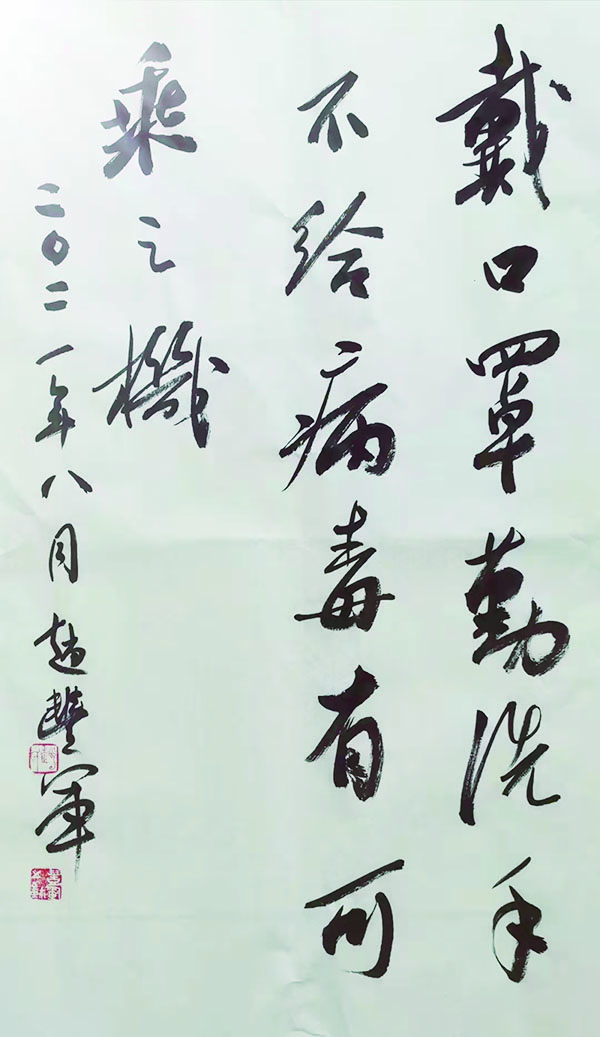 戴口罩勤洗手
不给病毒有可
乘之機
二〇二一年八月赵豐军